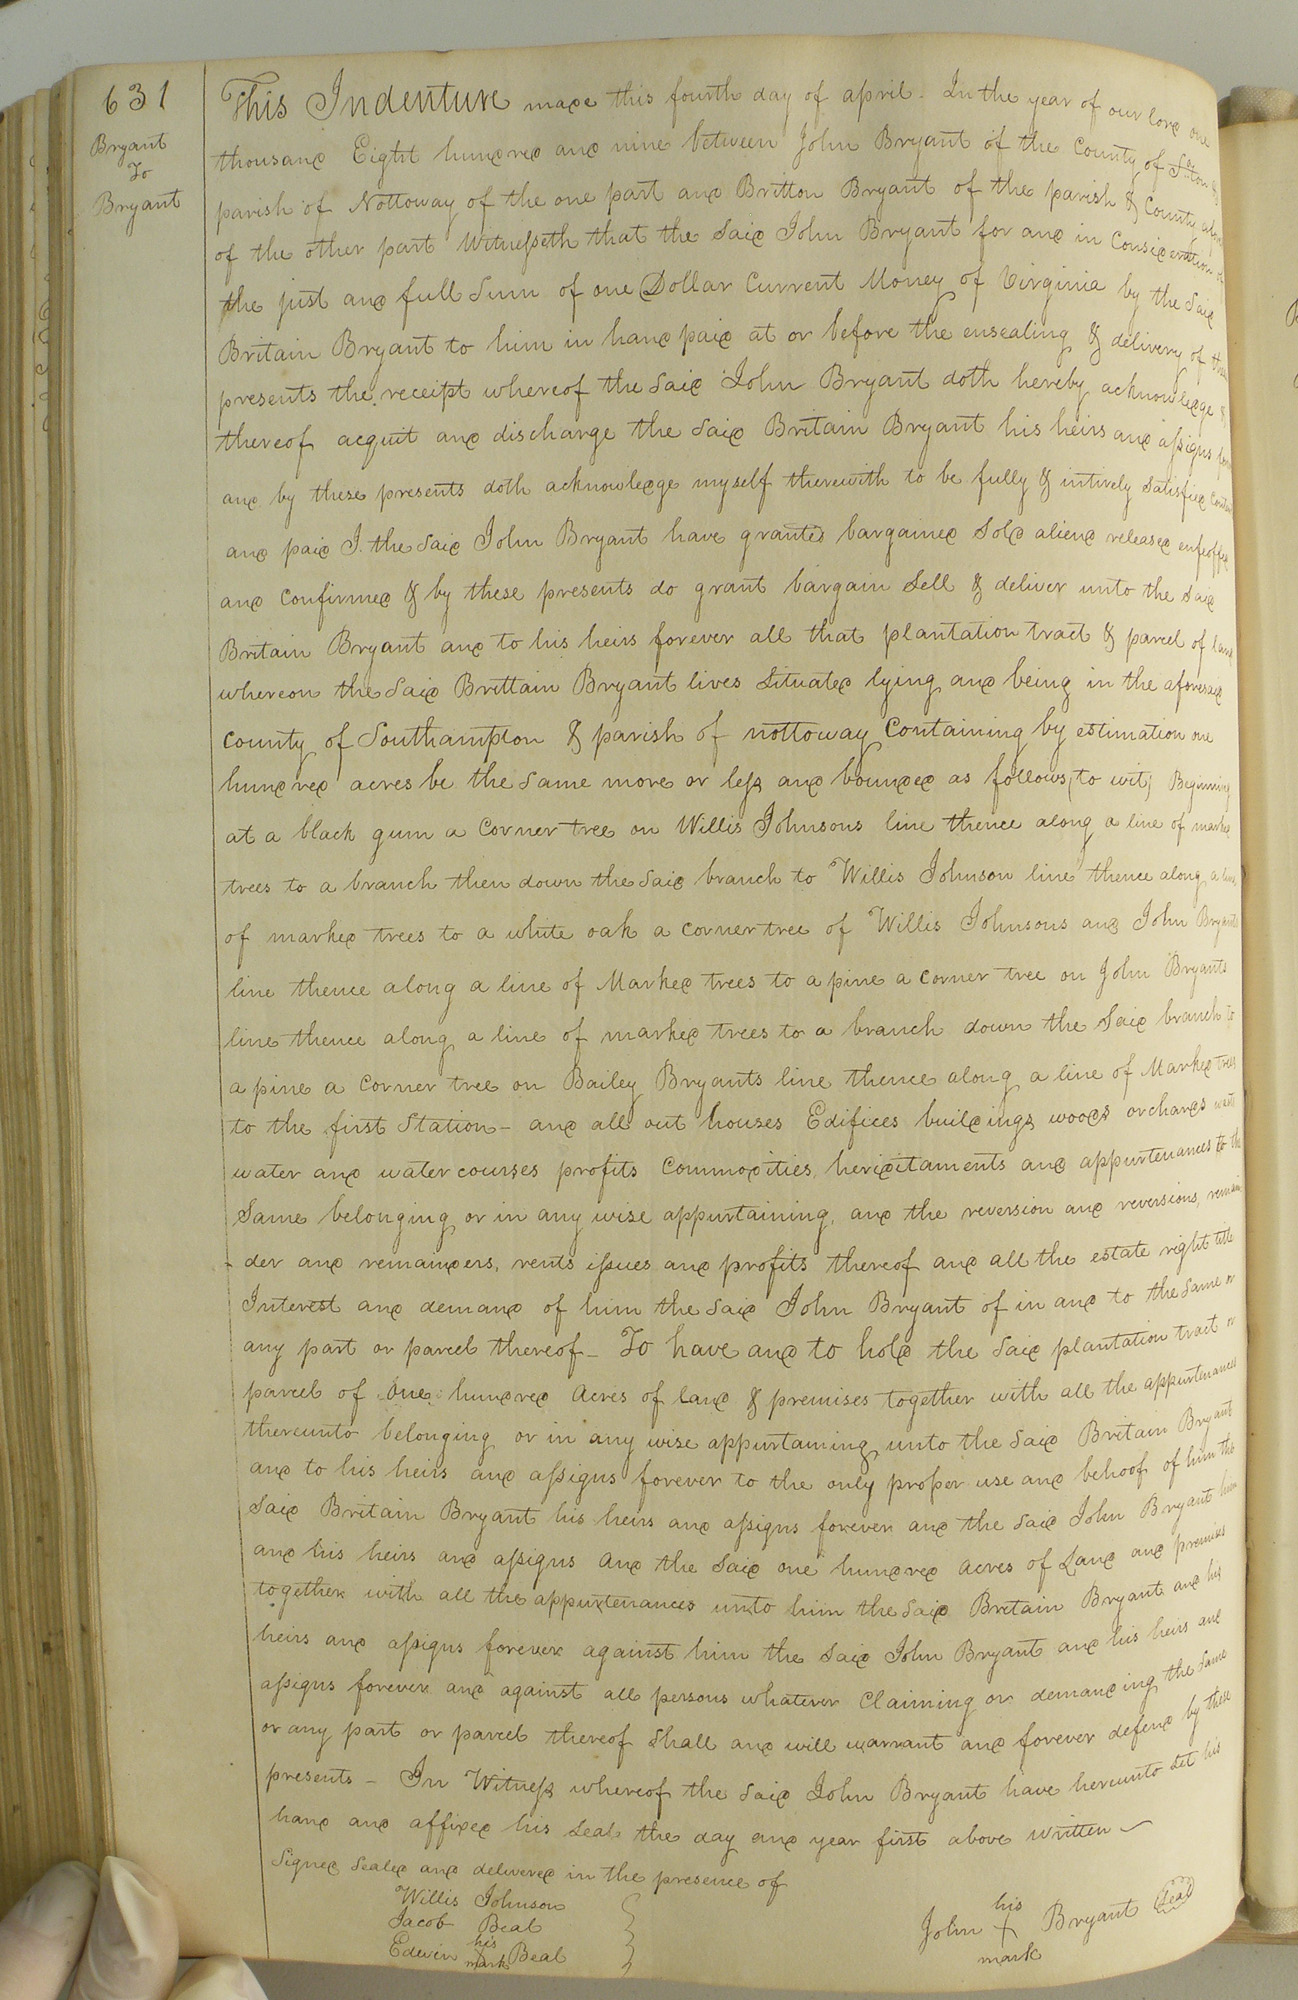 631
Bryant
To
Bryant
This Indenture made this fourth day of april. In the year of our lord one
thousand Eight hundred and nine between John Bryant of the County of
parish of Nottoway of the one part and Britton Bryant of the parish & County
of the other part Witnesseth that the said John Bryant for and in Consideration of
the just and full Sum of one Dollar Current Money of Virginia by the Said
Britain Bryant to him in hand paid at or before the ensealing & delivery of these
presents the receipt whereof the said John Bryant doth hereby acknowledge &
thereof acquit and discharge the said Britain Bryant his heirs and assigns
and by these presents doth acknowledge myself therewith to be fully & intirely satisfied
and paid I. the said John Bryant have granted bargained Sold aliend released enfeoffed
and Confirmed & by these presents do grant bargain Sell & deliver unto the said
Britain Bryant and to his heirs forever all that plantation tract & parcel of land
whereon the Said Brittain Bryant lives Situated lying and being in the aforesaid
County of Southampton & parish of nottoway Containing by estimation one
hundred acres be the same more or less and bounded as follows (to wit) Begining
at a black gum a Corner tree on Willis Johnsons line thence along a line of marked
trees to a branch then down the Said branch to Willis Johnson line thence along a line
of marked trees to a white oak a corner tree of Willis Johnsons and John Bryants
line thence along a line of Marked trees to a pine a corner tree on John Bryants
line thence along a line of marked trees to a branch down the Said branch to
a pine a Corner tree on Bailey Bryants line thence along a line of Marked trees
to the first Station - and all out houses Edifices buildings woods orchards
water and water courses profits Commodities, heriditaments and appurtenances to the
Same belonging or in any wise appurtaining, and the reversion and reversions, remain
- der and remainders, rents issues and profits thereof and all the estate right title
Interest and demand of him the said John Bryant of in and to the same or
any part or parcel thereof - To have and to hold the Said plantation tract or
parcel of One hundred Acres of land & premises together with all the appurtenances
thereunto belonging or in any wise appurtaining unto the Said Britain Bryant
and to his heirs and assigns forever to the only proper use and behoof of him the
Said Britain Bryant his heirs and assigns forever and the said John Bryant him
and his heirs and assigns and the said one hundred acres of Land and premises
together with all the appurtenances unto him the Said Britain Bryant and his
heirs and assigns forever against him the Said John Bryant and his heirs and
assigns forever and against all persons whatever Claiming or demanding the same
or any part or parcel thereof Shall and will warrant and forever defend by these
presents - In Witness whereof the said John Bryant have hereunto Set his
hand and affixed his seal the day and year first above written
Signed Sealed and delivered in the presence of
Willis Johnson
Jacob Beal
his
Edwin X Beal
mark
his
John X Bryant Seal
mark